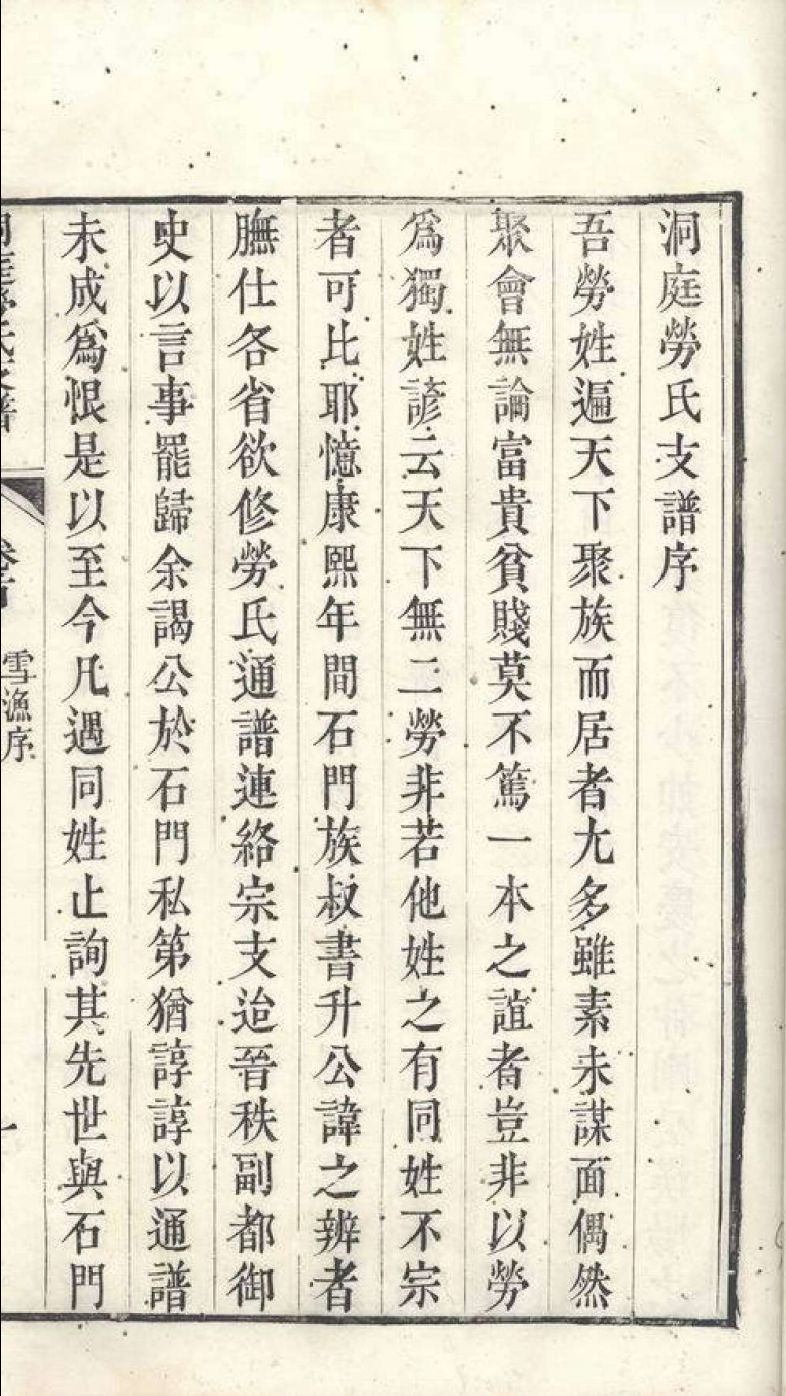 洞庭勞氏支譜序
吾勞姓遍天下聚族而居者尢多雖素未謀面偶然
聚會無論富貴貧賤莫不篤一本之誼者豈非以勞
爲獨姓諺云天下無二勞非若他姓之有同姓不宗
者可比耶憶康熙年間石門族叔書升公諱之辨者
膴仕各省欲修勞氏通譜連絡宗支迨晉秩副都御
史以言事罷歸余謁公於石門私第猶諄諄以通譜
未成爲恨是以至今凡遇同姓止詢其先世與石門
洞庭勞氏支譜
卷首
雪漁序
一